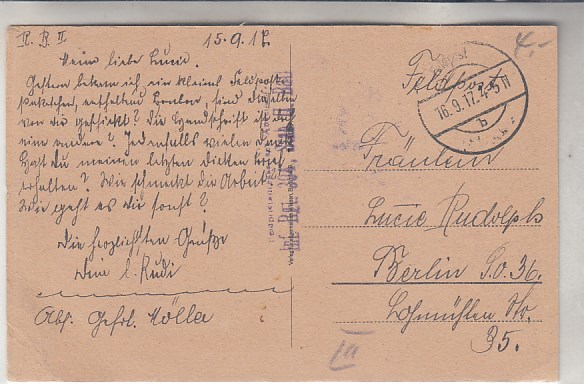 R. B. II
15.9.17
Meine liebe Lucie.
Gestern bekam ich ein kleines Feldpost-
päckchen, enthaltend Bonbon, sind dieselben
von dir geschickt? Die Handschrift ist doch
eine andere? Jedenfalls vielen Dank
Hast du meinen letzten dicken Brief
erhalten? Wie schmeckt die Arbeit
Wie geht es dir sonst?
Die herzlichsten Grüße
Dein l. Rudi
Abs. Gefr. Mölla
Feldpost
16.9.17. 4-5 N
b
4,-
Feldpost
Fräulein
Lucie Rudolph
Berlin S.O. 36.
Lohmühlen Str.
35.